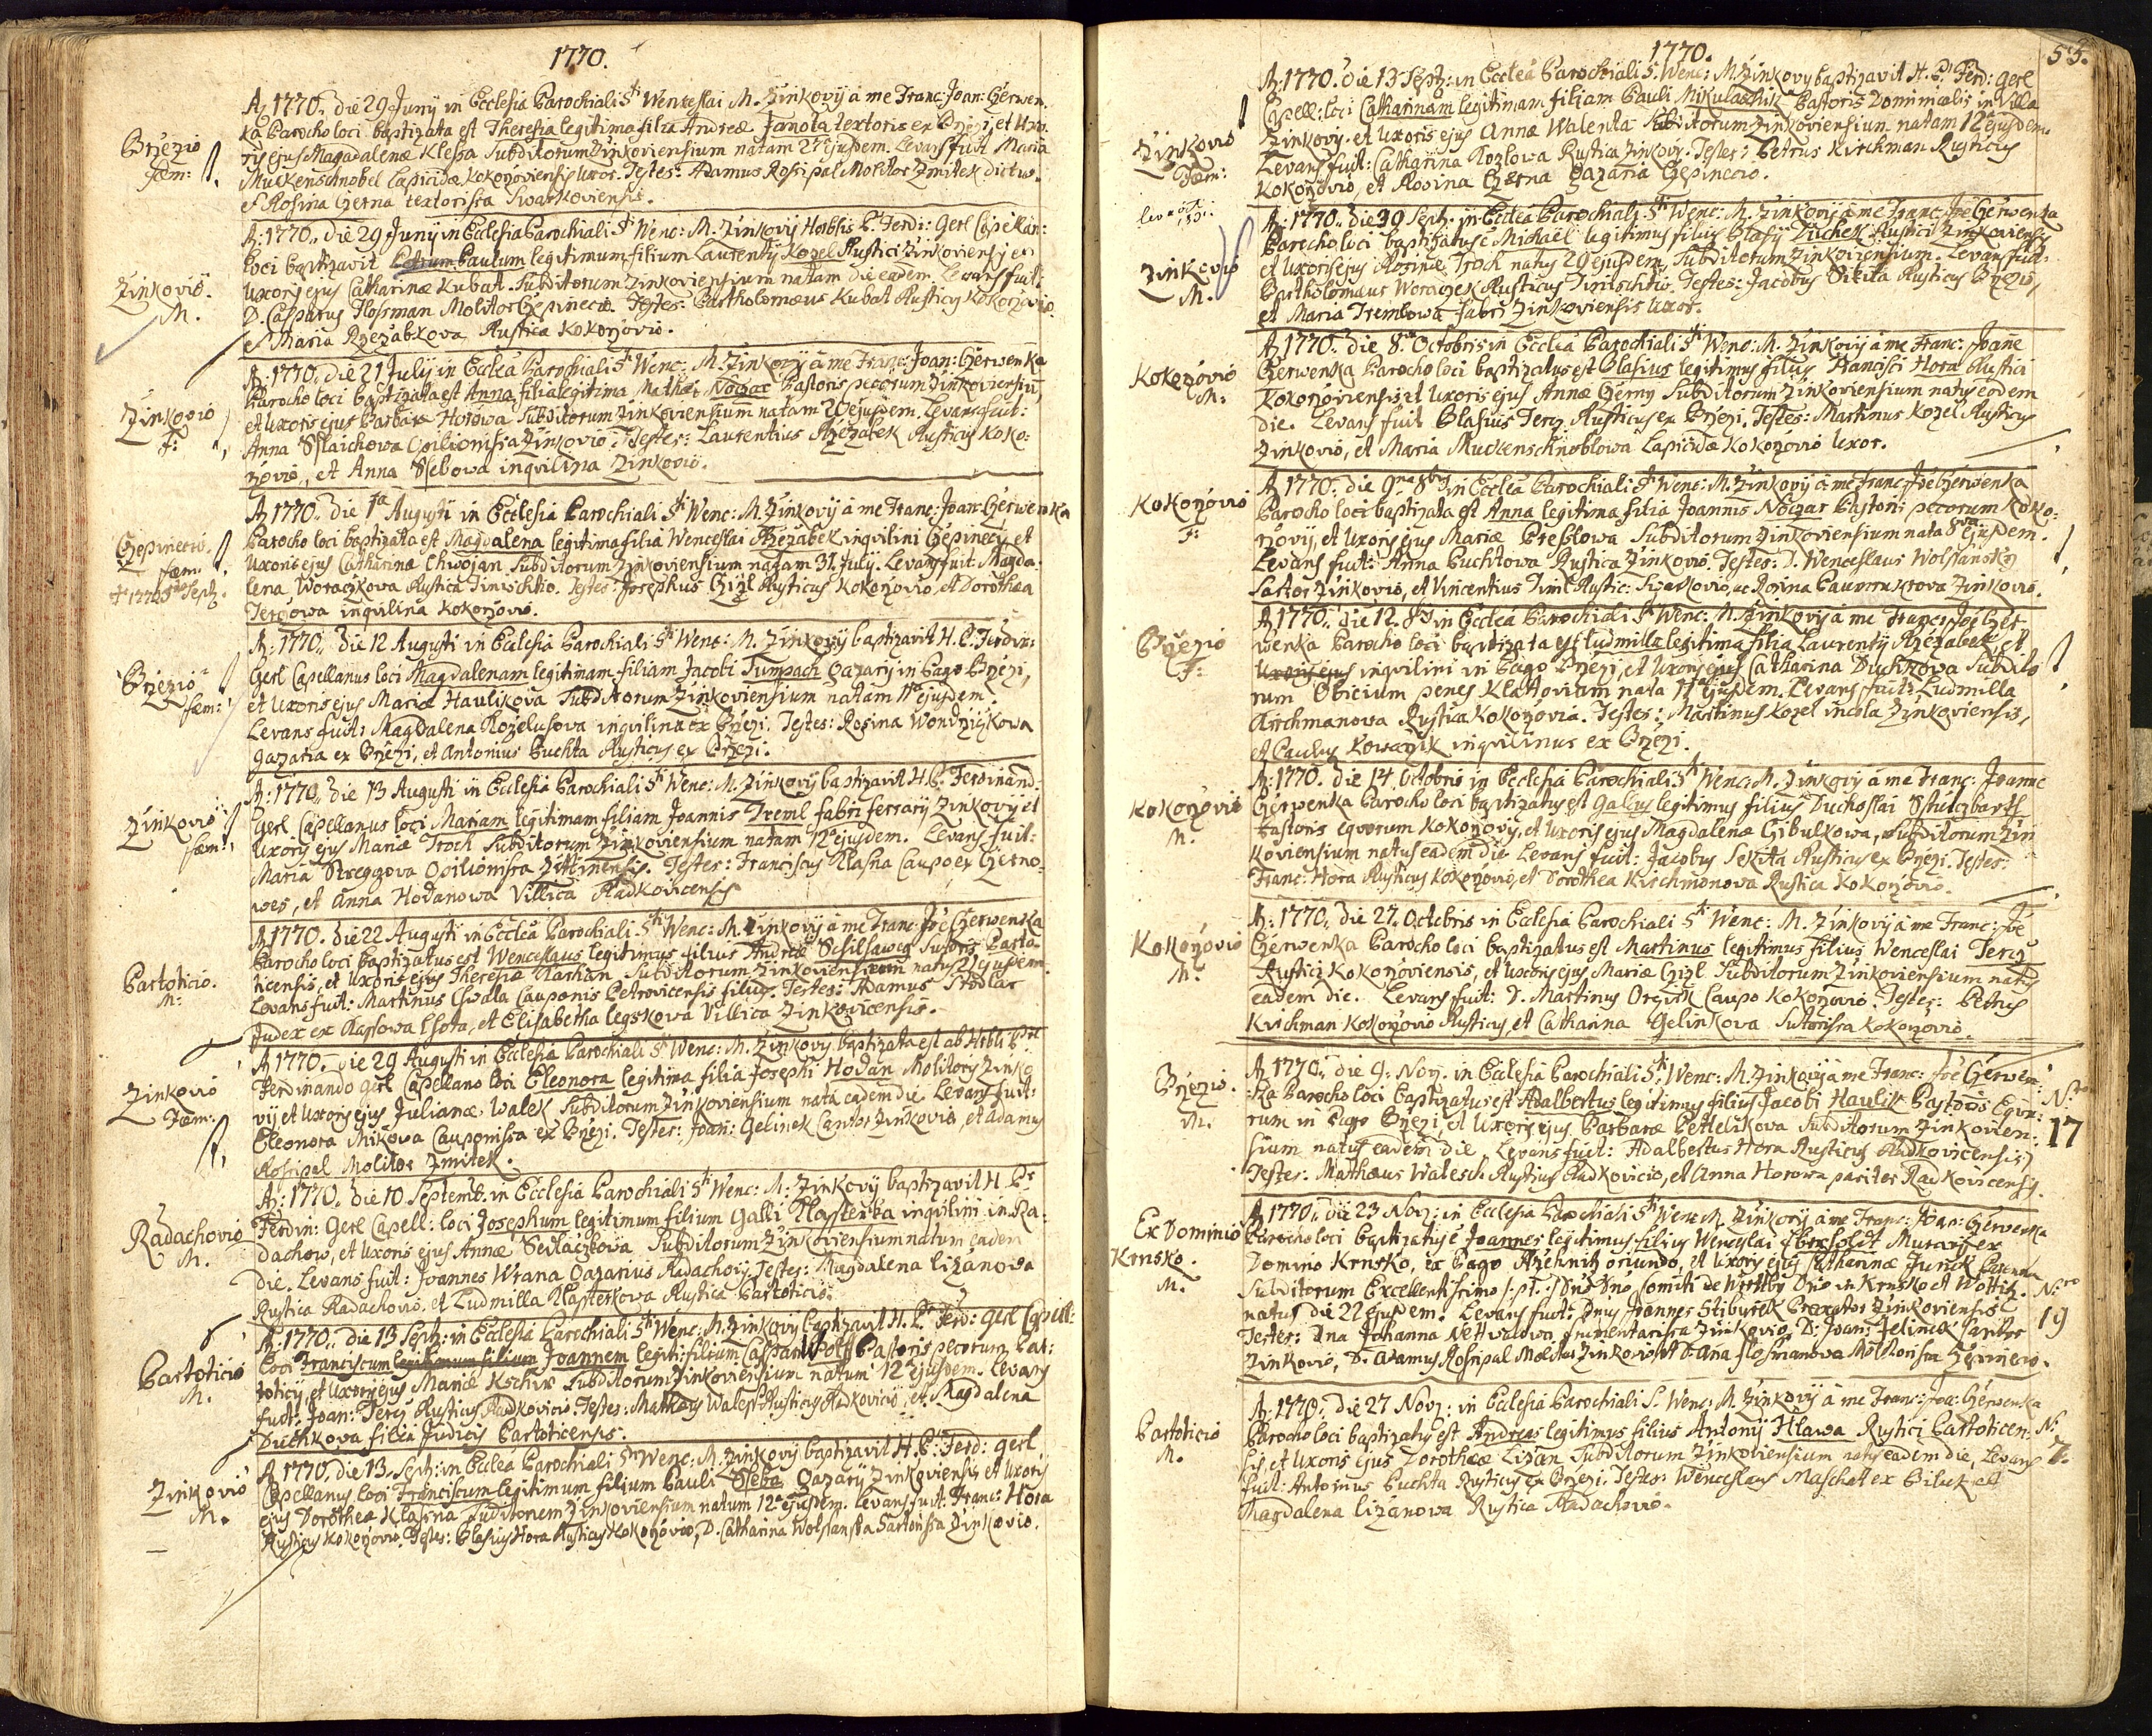 1770.
A: 1770. die 29 Junij in Ecclesia Parochiali S^ti Wenceslai M. Zinkovij à me Franc: Joan: Czerwen-
Brzezio
fæm:
ka Parocho loci baptizata est Theresia legitima filia Andreæ Janota textoris ex Brzezi, et Uxo-
ris ejus Magdalenæ Klessa Subditorum Zinkoviensium natam 27 ejusdem. Levans fuit Maria
Muckenschnobel Lapicidæ Kokozoviensis Uxor. Testes: Adamus Rosipal Molitor Zmitek dictus.
et Rosina Czerna textorissa Swarkoviensis.
A: 1770. die 29 Junij in Ecclesia Parochiali S^ti Wenc: M. Zinkovij P. Ferdi: Gerl Capellan:
Zinkovio.
M.
loci baptizavit Petrum Paulum legitimum filium Laurentij Kozel Rustici Zinkoviensis et
Uxoris ejus Catharinæ Kubat Subditorum Zinkoviensium natam die eadem. Levans fuit:
D. Casparus Flosman Molitor Czepinecio. Testes: Bartholomæus Kubat Rusticus Kokozovio
et Maria Rzezabkova Rustica Kokozovio.
A: 1770. die 21 Julij in Ecclea Parochiali S^ti Wenc: M. Zinkovij à me Franc: Joan: Czerwenka
Zinkovio
F:
Parocho loci baptizata est Anna filia legitima Mathæi Noczar Pastoris pecorum Zinkoviensium,
et Uxoris ejus Barbaræ Horowa Subditorum Zinkoviensium natam 20 ejusdem. Levans fuit:
Anna Sslaichowa Opilionissa Zinkovio. Testes: Laurentius Rzezabek Rusticus Koko:
zovio, et Anna Ssebowa inqvilina Zinkovio.
A: 1770. die 1^a Augusti in Ecclesia Parochiali S^ti Wenc: M. Zinkovij à me Franc: Joan: Czerwenka
Czepinecio.
fæm:
Parocho loci baptizata est Magdalena legitima filia Wenceslai Rzezabek inqvilini Czepinecij et
Uxoris ejus Catharinæ Chwojan Subditorum Zinkoviensium natam 31. July. Levans fuit: Magda-
lena Woraczkova Rustica Tinischtio. Testes: Josephus Czizl Rusticus Kokozovio et Dorothea
Terczowa inqvilina Kokozovio.
A: 1770. die 12 Augusti in Ecclesia Parochiali S^ti Wenc: M. Zinkovij baptizavit H. P. Ferdin:
Brzezio
fæm:
Gerl Capellanus loci Magdalenam legitimam filiam Jacobi Tumpach Gazarij in Pago Brzezi,
et Uxoris ejus Mariæ Havlikova Subditorum Zinkoviensium natam 11^a ejusdem.
Levans fuit: Magdalena Kozelusova inqvilina ex Brzezi. Testes: Rosina Wondrziczkowa
Gazaria ex Brzezi, et Antonius Buchta Rusticus ex Brzezi.
A: 1770. die 13 Augusti in Ecclesia Parochiali S^ti Wenc: M. Zinkovij baptizavit H. P. Ferdinand:
Zinkovio
fæm:
Gerl Capellanus loci Mariam legitimam filiam Joannis Treml fabri ferrarij Zinkovij et
Uxoris ejus Mariæ Troch Subditorum Zinkoviensium natam 12^a ejusdem. Levans fuit:
Maria Streggova Opilionissa Zittinensis. Testes: Franciscus Klasna Caupo ex Czerno-
wes, et Anna Hodanowa Villica Radkovicensis
A: 1770. die 22 Augusti in Ecclea Parochiali S^ti Wenc: M. Zinkovij à me Franc: Joe Czerwenka
Partoticio.
M:
Parocho loci baptizatus est Wenceslaus legitimus filius Andreæ Sutoris Parto-
ticensis, et Uxoris ejus Theresiæ Subditorum Zinkoviensium natus 21 ejusdem.
Levans fuit: Martinus Chwala Cauponis Petrovicensis filius. Testes: Adamus Stodlar
Judex ex Lhota, et Elisabetha Legskova Villica Zinkovicensis.
A: 1770. die 29 Augusti in Ecclesia Parochiali S^ti Wenc: M. Zinkovij baptizata est ab Hrbli P^re
Zinkovio
Fæm:
Ferdinando Gerl Capellano loci Eleonora legitima filia Josephi Hodan Molitoris Zinko
vij et Uxoris ejus Julianæ Walek Subditorum Zinkoviensium nata eadem die Levans fuit:
Eleonora Mikowa Cauponissa ex Brzezi. Testes: Joan: Gelinek Cantor Zinkovio, et Adamus
Rosipal Molitor Zmitek.
A: 1770. die 10 Septemb. in Ecclesia Parochiali S^ti Wenc: M: Zinkovij baptizavit H. P^r
Radachovio
M.
Ferdin: Gerl Capell: loci Josephum legitimum filium Galli Klasterka inqvilini in Ra-
dachow, et Uxoris ejus Annæ Sedlaczkowa Subditorum Zinkoviensium natum eadem
die. Levans fuit: Joannes Wrana Gazarius Radachovij Testes: Magdalena Lizanova
Rustica Radachovio, et Ludmilla Klasterkova Rustica Partoticio.
A: 1770. die 13 Septz: in Ecclesia Parochiali S^ti Wenc: M. Zinkovij baptizavit H. P^r Ferd: Gerl Capell:
Partoticio
M.
loci Franciscum legitimum filium Joannem legiti: filium Caspari Wolf Pastoris pecorum Par:
toticij, et Uxoris ejus Mariæ Subditorum Zinkoviensium natum 12^a ejusdem. Levans
fuit: Joan: Tercz Rusticus Radkovicio. Testes: Mathæus Walesch Rusticus Radkovicij, et Magdalena
Duchkova filia Judicis Partoticensis.
A: 1770. die 13. Septz: in Ecclea Parochiali S^ti Wenc: M. Zinkovij baptizavit H. P. Ferd: Gerl
Zinkovio
M.
Capellanus loci Franciscum legitimum filium Pauli Sseba Gazarij Zinkoviensis et Uxoris
ejus Dorotheæ Klasna Subditorum Zinkoviensium natum 12^a ejusdem. Levans fuit: Franc: Hora
Rusticus Kokozovio. Testes: Blasius Hora Rusticus Kokozovio, D. Catharina Wolfianska Sartorissa Zinkovio.
1770.
55.
A: 1770. die 13 Septz: in Ecclea Parochiali S. Wenc: M. Zinkovy baptizavit H. P. Ferd: Gerl
Zinkovio
Fæm:
Capell: loci Catharinam legitimam filiam Pauli Mikulaschik Pastoris Dominicalis in Villa
Zinkovy. et Uxoris ejus Annæ Walenta Subditorum Zinkoviensium natam 12^a ejusdem.
Levans fuit: Catharina Kozlowa Rustica Zinkov. Testes: Petrus Kirchman Rusticus
Kokozovio, et Rosina Czerna Gazaria Czepinecio.
A: 1770. die 30 Septz. in Ecclea Parochiali S^ti Wenc: M. Zinkovij à me Franc: Joe Czerwenka
Zinkovio
M.
Parocho loci baptizatus e Michaël legitimus filius Blasij Duchek Rustici Zinkoviensis
et Uxoris ejus Rosinæ Troch natus 29 ejusdem, Subditorum Zinkoviensium. Levans fuit:
Bartholomæus Woraczek Rusticus Tinischtio. Testes: Jacobus Sikita Rusticus Brzezio,
et Maria Tremlowa fabri Zinkoviensis Uxor.
A: 1770. die 8^va Octobris in Ecclia Parochiali S^ti Wenc: M. Zinkovij à me Franc: Joañe
Kokozovio
M.
Czerwenka Parocho loci baptizatus est Blasius legitimus filius Francisci Hora Rustici
Kokozoviensis et Uxoris ejus Annæ Czerny Subditorum Zinkoviensium natus eodem
die. Levans fuit Blasius Tercz. Rusticus ex Brzezi. Testes: Martinus Kozel Rusticus
Zinkovio, et Maria Muckenschnoblowa Lapicidæ Kokozovio Uxor.
A: 1770. die 9^na 8br in Ecclea Parochiali S^ti Wenc: M. Zinkovij à me Franc: Joe Czerwenka
Kokozovio
F:
Parocho loci baptizata est Anna legitima filia Joannis Noczar Pastoris pecorum Koko:
zovij, et Uxoris ejus Mariæ Preblowa Subditorum Zinkoviensium nata 8^va ejusdem.
Levans fuit: Anna Buchtowa Rustica Zinkovio. Testes: D. Wenceslaus Wolfiansky
Sartor Zinkovio, et Vincentius Timl Rustic: ac Rosina Zinkovio.
A: 1770. die 12. 8br in Ecclesia Parochiali S^ti Wenc: M. Zinkovij à me Franc: Joe Czer-
Brzezio
F:
wenka Parocho loci baptizata est Ludmilla legitima filia Laurentij Rzezabek et
Uxoris ejus inqvilini in Pago Brzezi, et Uxoris ejus Catharina Duchkowa Subdito
rum Obicium penes Klattoviam nata 11 ejusdem. Levans fuit: Ludmilla
Kirchmanova Rustica Kokozovia. Testes: Martinus Kozel incola Zinkoviensis,
et Paulus Kowarzik inqvilinus ex Brzezi.
A: 1770. die 14 Octobris in Ecclesia Parochiali S^ti Wenc: M. Zinkovij à me Franc: Joanne
Kokozovio
M.
Czerwenka Parocho loci baptizatus est Gallus legitimus filius Duchoslai Stulczbarth
Pastoris eqvorum Kokozovij, et Uxoris ejus Magdalenæ Czibulkowa, Subditorum Zin
koviensium natus eadem die Levans fuit: Jacobus Sekita Rusticus ex Brzezi. Testes:
Franc: Hora Rusticus Kokozovio, et Dorothea Kirchmonova Rustica Kokozovio.
A: 1770. die 27. Octobris in Ecclesia Parochiali S^ti Wenc: M. Zinkovij à me Franc: Joe
Kokozovio
M.
Czerwenka Parocho loci baptizatus est Martinus legitimus filius Wenceslai Tercz
Rustici Kokozoviensis, et Uxoris ejus Mariæ Czizl Subditorum Zinkoviensium natus
eadem die. Levans fuit: D. Martinus Caupo Kokozovio. Testes: Petrus
Krichman Kokozovio Rusticus, et Catharina Gelinkova Sutorissa Kokozovio.
A: 1770. die 9. Nov. in Ecclesia Parochiali S^ti Wenc: M. Zinkovij à me Franc: Joe Czerwen:
Brzezio.
M.
ka Parocho loci baptizatus est Adalbertus legitimus filius Jacobi Haulik Pastoris Eqvo:
N^ro
17
rum in Pago Brzezi, et Uxoris ejus Barbaræ Petelikova Subditorum Zinkovien:
sium natus eadem die Levans fuit: Adalbertus Hora Rusticus Radkovicensis
Testes: Mathæus Walesch Rusticus Radkovicio, et Anna Horowa pariter Radkovicensis.
A: 1770. die 23 Nov: in Ecclesia Parochiali S^ti Wenc: M. Zinkovij à me Franc: Joan: Czerwenka
Ex Dominio
Krnsko.
M.
Parocho loci baptizatus e Joannes legitimus filius Wenceslai Murarij ex
Dominio Krnsko, ex Pago Rzehnitz oriundo, et Uxoris ejus Catharinæ Junek
Subditorum Excellentissimo Dno Dno Comiti de Wrttby Dno in Krnsko et Wottitz.
N^ro
19
natus die 22 Ejusdem. Levans fuit: Dnus Joannes Stiburek Braxator Zinkoviensis
Testes: Dna Johanna Nettwaldwa frumentarissa Zinkovio, D: Joan: Jelinek Cantor
Zinkovio, D. Adamus Rosipal Molitor Zinkovio et D. Ana Flosmanowa Molitorissa Czepinecio.
A: 1770. die 27 Nov: in Ecclesia Parochiali S. Wenc: M. Zinkovij à me Franc: Joe: Czerwenka
Partoticio
M.
Parocho loci baptizatus est Andreas legitimus filius Antonij Hlawa Rustici Partoticen-
N^o
7.
sis et Uxoris ejus Dorotheæ Lizan Subditorum Zinkoviensium natus eadem die, Levans
fuit: Antonius Buchta Rusticus ex Brzezi. Testes: Wenceslaus Maschat ex Biluk et
Magdalena Lizanowa Rustica Radachovio.